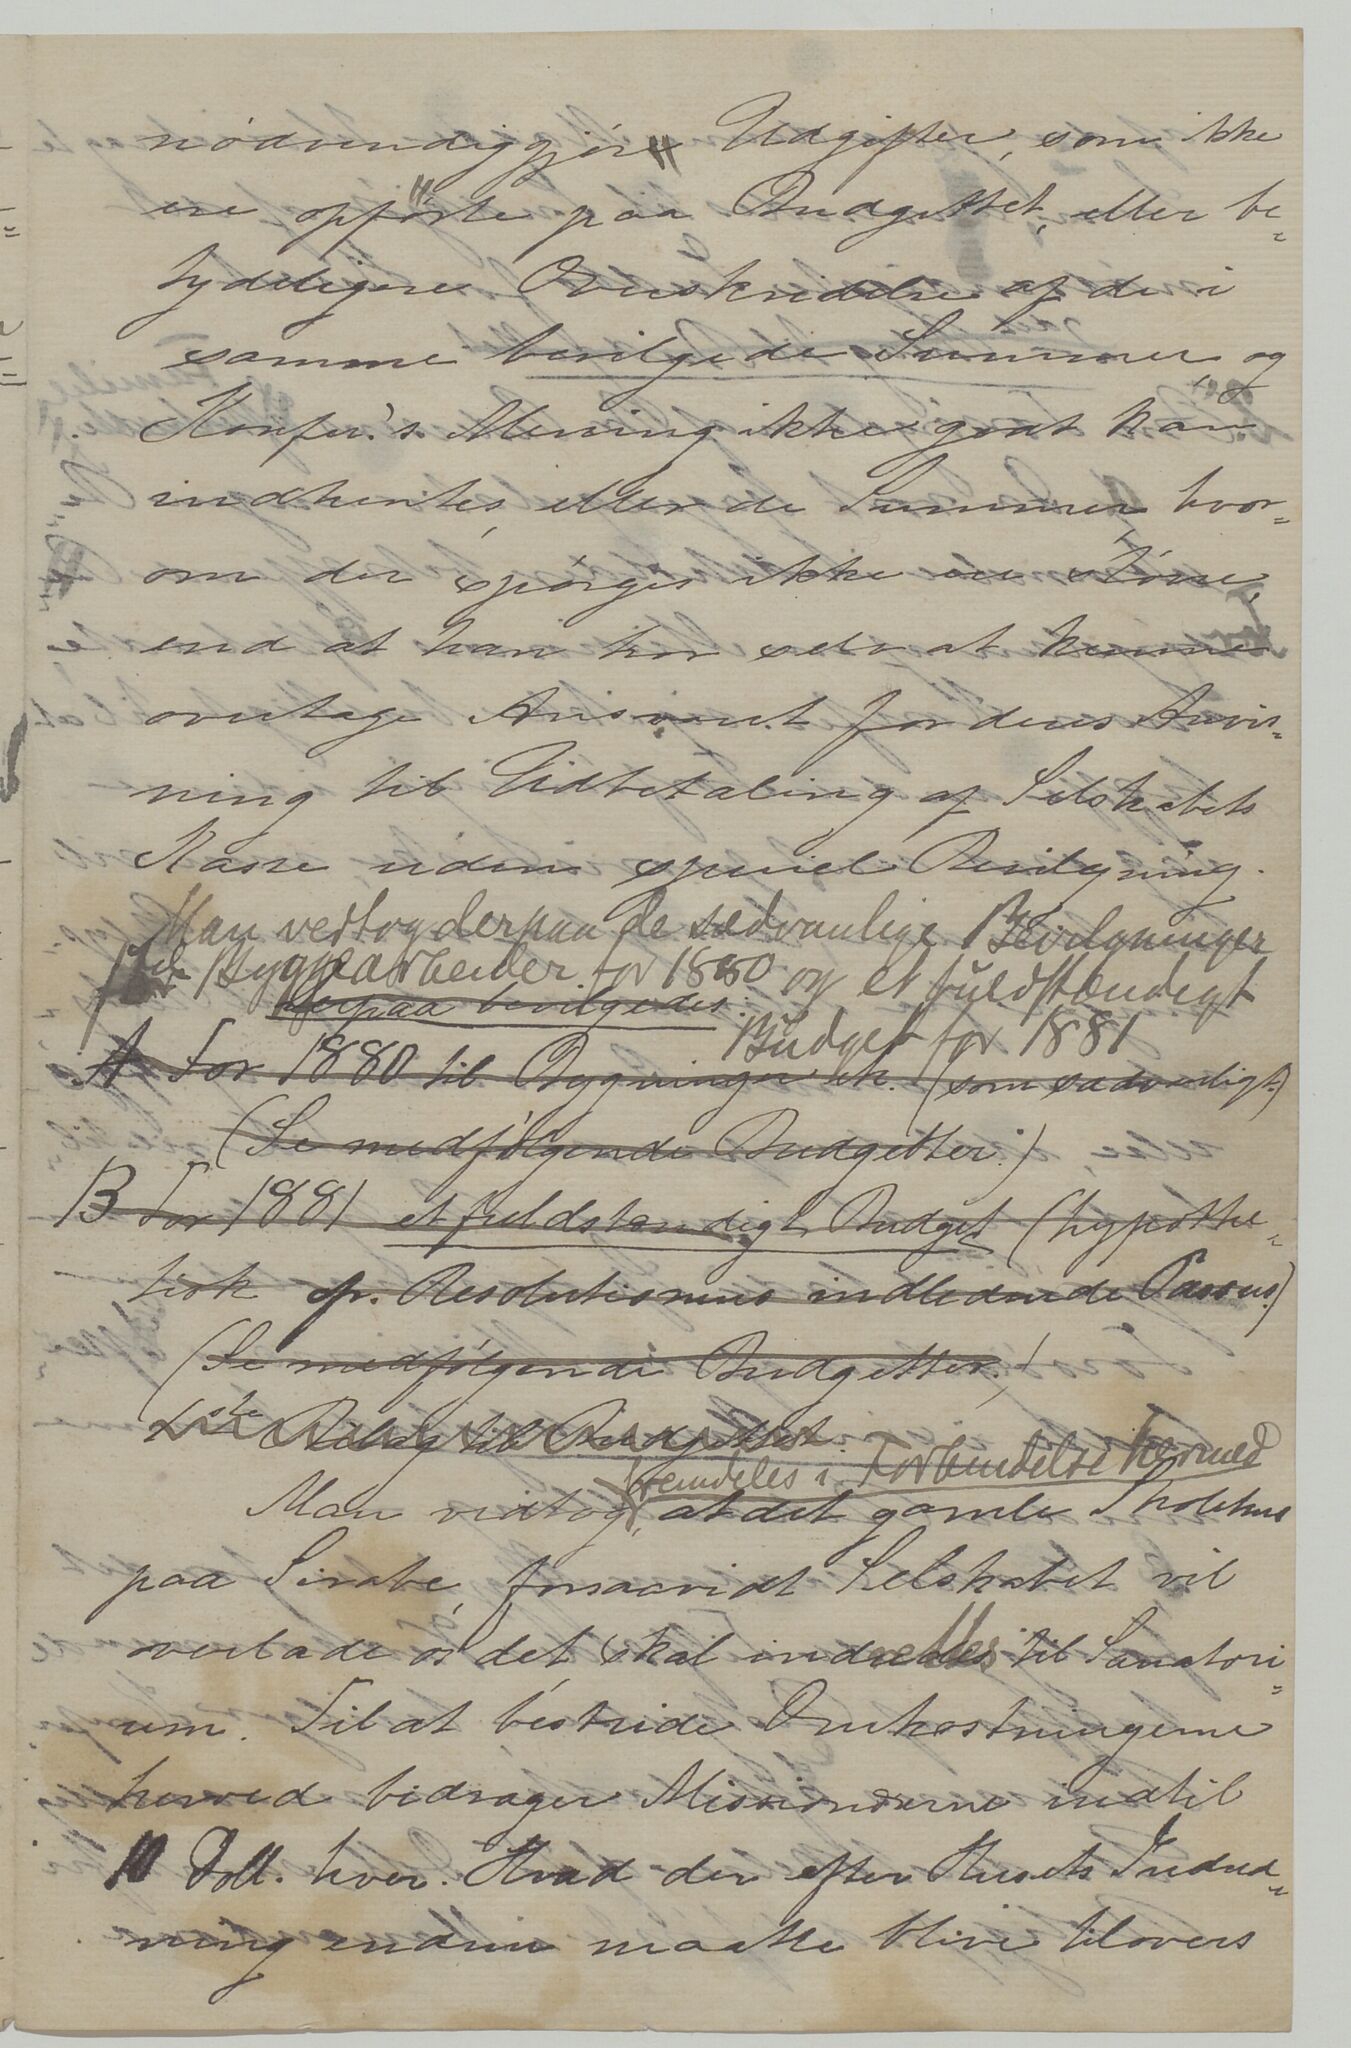 nødvendiggjøre Udgifter, som ikke
ere opførte paa Budgettet, eller be-
tydeligere Overskridelse af de i
samme bevilgede Summer, og
Konfer.'s Mening ikke godt kan
indhentes, eller de Summer, hvor-
om der spørges ikke ere større,
end at han tror selv at kunne
overtage Ansvaret for deres Anvis-
ning til Udbetaling af Selskabets
Kasse uden speciel Bevilgning.
Man vedtog derpaa de sædvanlige Bevilgninger
til Byggearbeider for 1880 og et fuldstændigt
Derpaa bevilgedes:
Budget for 1881
A For 1880 til Bygninger etc. (som sædvanligt)
(Se medfølgende Budgetter.)
B For 1881 et fuldstændigt Budget (hypothe-
tisk cfr. Resolutionens indledende Passus.)
(Se medfølgende Budgetter.)
Bilag til Budgettet.
fremdeles i Forbindelse hermed
Man vedtog, at det gamle Skolehus
paa Sirabe, forsaavidt Selskabet vil
overlade os det, skal indrettes til Sanatori-
um. Til at bestride Omkostningerne
herved bidrager Missionærerne indtil
10 Doll. hver. Hvad der efter Husets Indred-
ning endnu maatte blive tilovers